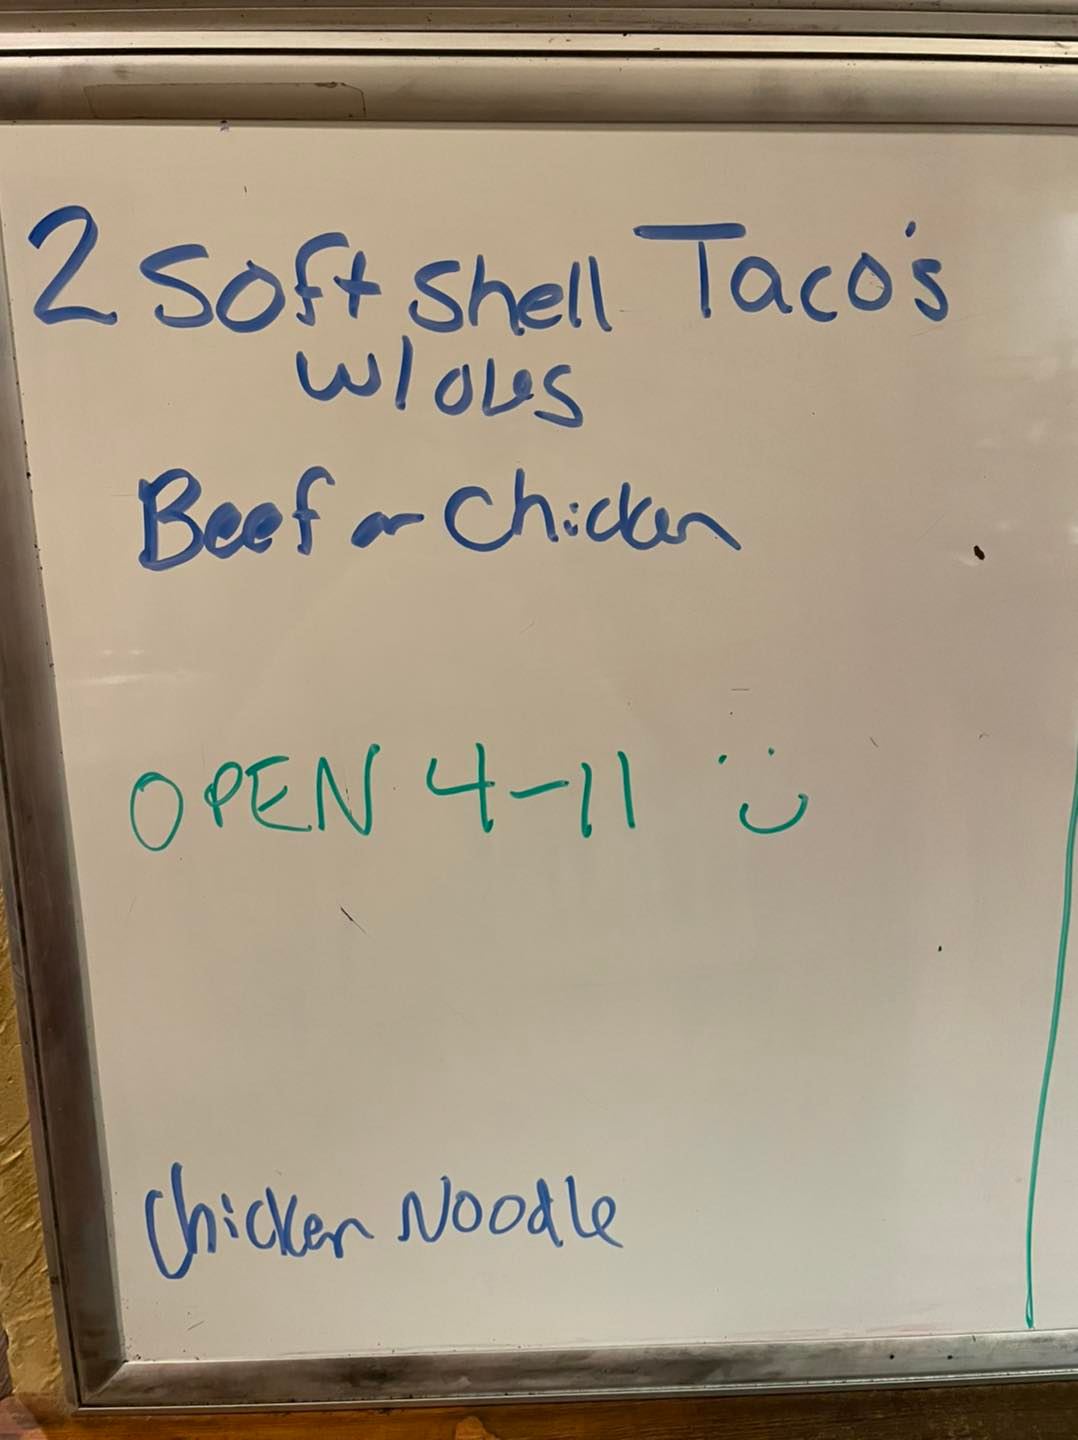 2 Soft Shell Taco's
w/
Beef or Chicken
OPEN 4-11
Chicken Noodle